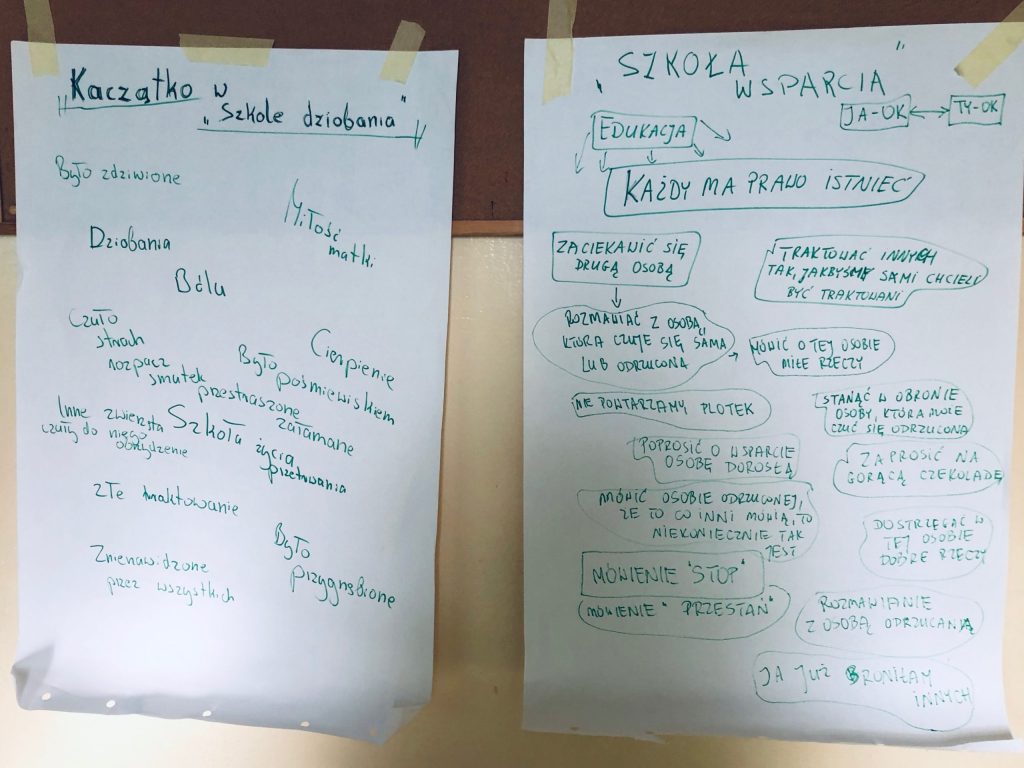 "Kaczątko w
"Szkole dziobania"
Było zdziwione
Miłość
matki
Dziobania
Bólu
Czuło
strach
rozpacz
smutek
przestraszone
Cierpienie
Było
pośmiewiskiem
załamane
Inne zwierzęta
czuły do niego
obrzydzenie
Szkoła życia
przetrwania
złe traktowanie
Było
przygnębione
Znienawidzone
przez wszystkich
"SZKOŁA
WSPARCIA"
JA-OK
TY-OK
EDUKACJA
KAŻDY MA PRAWO ISTNIEĆ
ZACIEKAWIĆ SIĘ
DRUGĄ OSOBĄ
TRAKTOWAĆ INNYCH
TAK, JAKBYŚMY SAMI CHCIELI
BYĆ TRAKTOWANI
ROZMAWIAĆ Z OSOBĄ,
KTÓRA CZUJE SIĘ SAMA
LUB ODRZUCONA
MÓWIĆ O TEJ OSOBIE
MIŁE RZECZY
NIE POWTARZAMY PLOTEK
STANĄĆ W OBRONIE
OSOBY, KTÓRA MOŻE
CZUĆ SIĘ ODRZUCONA
POPROSIĆ O WSPARCIE
OSOBĘ DOROSŁĄ
ZAPROSIĆ NA
GORĄCĄ CZEKOLADĘ
MÓWIĆ OSOBIE ODRZUCONEJ,
ŻE TO CO INNI MÓWIĄ, TO
NIEKONIECZNIE TAK
JEST
DOSTRZEGAĆ W
TEJ OSOBIE
DOBRE RZECZY
MÓWIENIE "STOP"
MÓWIENIE "PRZESTAŃ"
ROZMAWIANIE
Z OSOBĄ ODRZUCANĄ
JA JUŻ BRONIŁAM
INNYCH